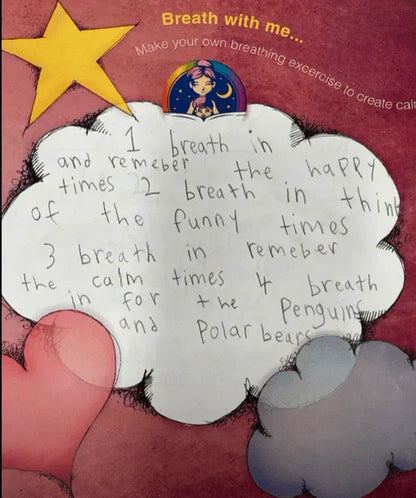 Breath with me...
Make your own breathing excercise to create cal
1 breath in
and remeber the happy
times 2 breath in think
of the funny times
3 breath in remeber
the calm times 4 breath
in for the Penguins
and Polar bears